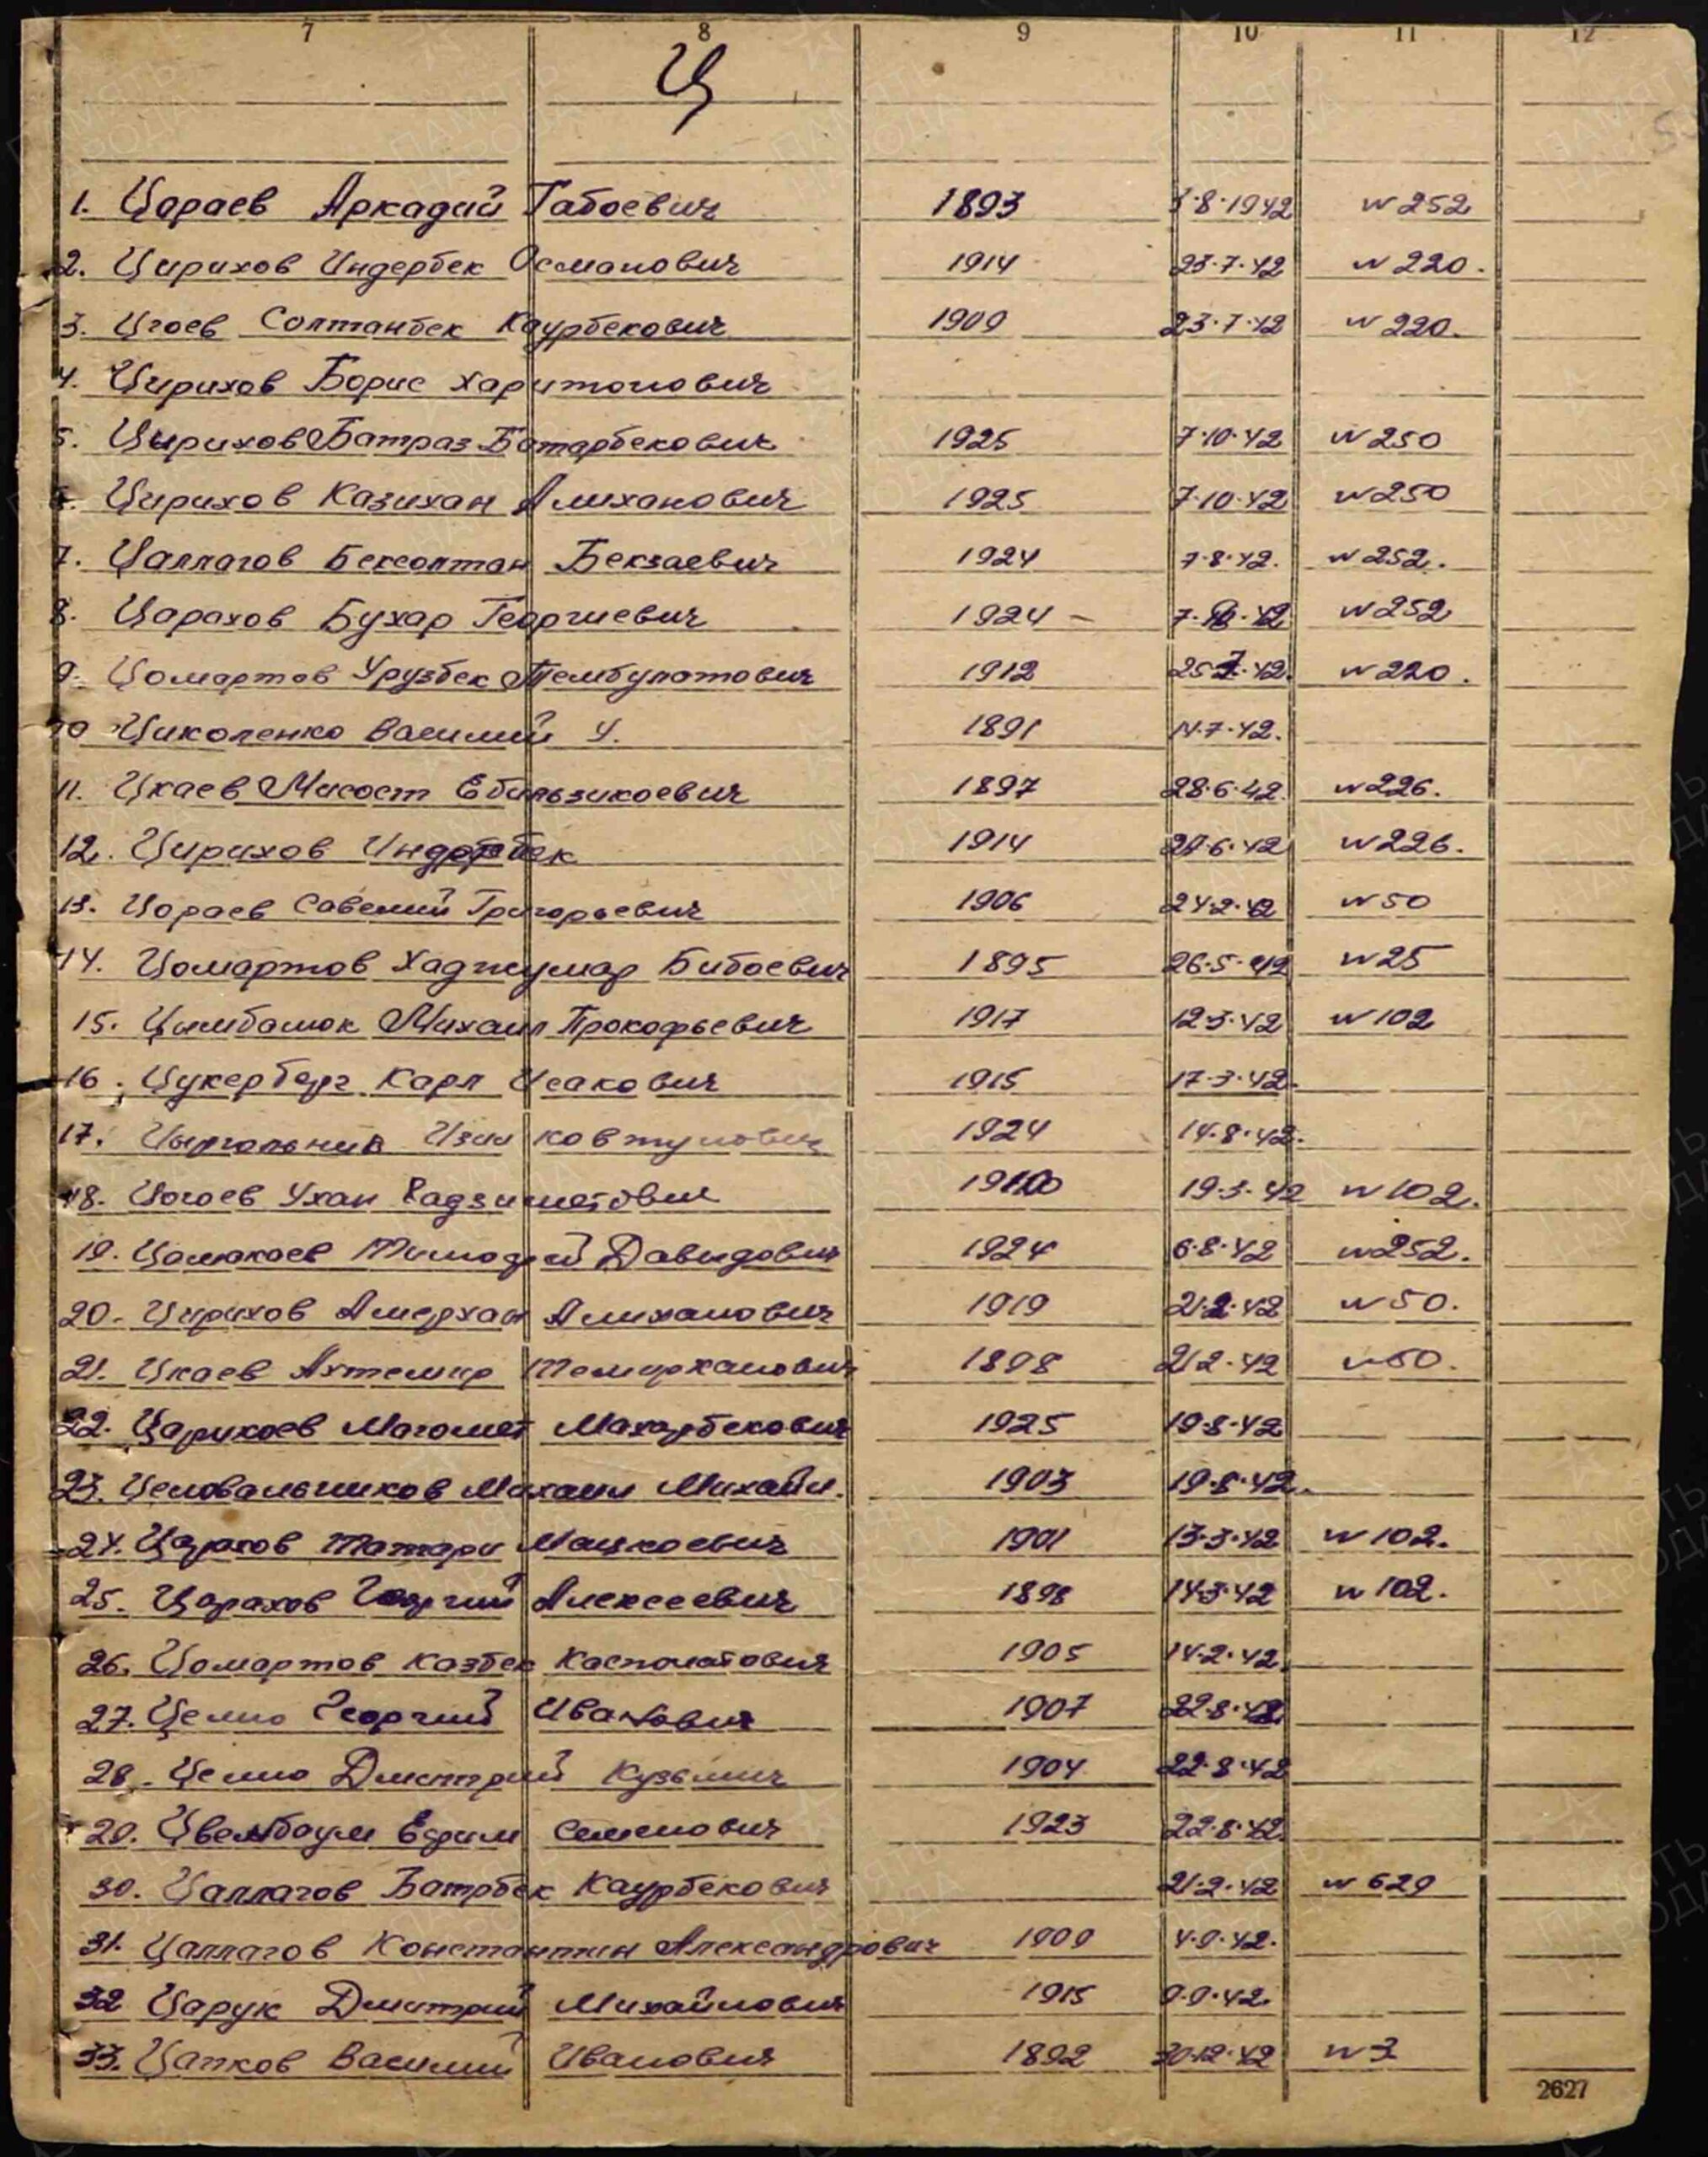 7 8 9 10 11 12
Ц
1. Цараев Аркадий Габоевич 1893 3.8.1942 n 252
2. Цирихов Индербек Османович 1914 23.7.42 n 220.
3. Цгоев Солтанбек Каурбекович 1909 23.7.42 n 220.
4. Цирихов Борис Харитонович
5. Цирихов Батраз Батарбекович 1925 7.10.42 n 250
6. Цирихов Казихан Алиханович 1925 7.10.42 n 250
7. Цаллагов Бексолтан Бекзаевич 1924 7.8.42. n 252.
8. Царахов Бухар Георгиевич 1924 – 7. .42 n 252
9. Цомартов Урузбек Тембулатович 1912 25.7.42. n 220.
10 Циколенко Василий У. 1891 14.7.42.
11. Цкаев Мисост Ебызыкоевич 1897 28.6.42. n 226.
12. Цирихов Индербек 1914 28.6.42 n 226.
13. Цораев Савелий Григорьевич 1906 24.2.42 n 50
14. Цомартов Хаджумар Бибоевич 1895 26.5.42 n 25
15. Цымбалюк Михаил Прокофьевич 1917 12.3.42 n 102
16. Цукерберг Карл Исакович 1915 17.3.42.
17. Изик 1924 14.8.42.
18. Цогоев Ухан 19.3.42 n 102.
19. Тимофей Давидович 1924 6.8.42 n 252.
20. Цирихов Амерхан Алиханович 1919 21.2.42 n 50.
21. Цкаев Ахтемир Темирханович 1898 21.2.42 n 50.
22. Царикаев Магомет Махарбекович 1925 19.8.42
23. Целовальников Михаил Михайл. 1903 19.8.42.
24. Царахов Татари Мацкоевич 1901 13.3.42 n 102.
25. Царахов Георгий Алексеевич 1898 14.3.42 n 102.
26. Цомартов Казбек Каспола­тович 1905 14.2.42.
27. Целио Георгий Иванович 1907 22.8.42.
28. Целио Дмитрий Кузьмич 1904 22.8.42
29. Цвейгбаум Ефим Семенович 1923 22.8.42
30. Цаллагов Батрбек Каурбекович 21.2.42 n 629
31. Цаллагов Константин Александрович 1909 4.9.42.
32 Царук Дмитрий Михайлович 1915 9.9.42.
33. Цапков Василий Иванович 1892 30.12.42 n 3
2627